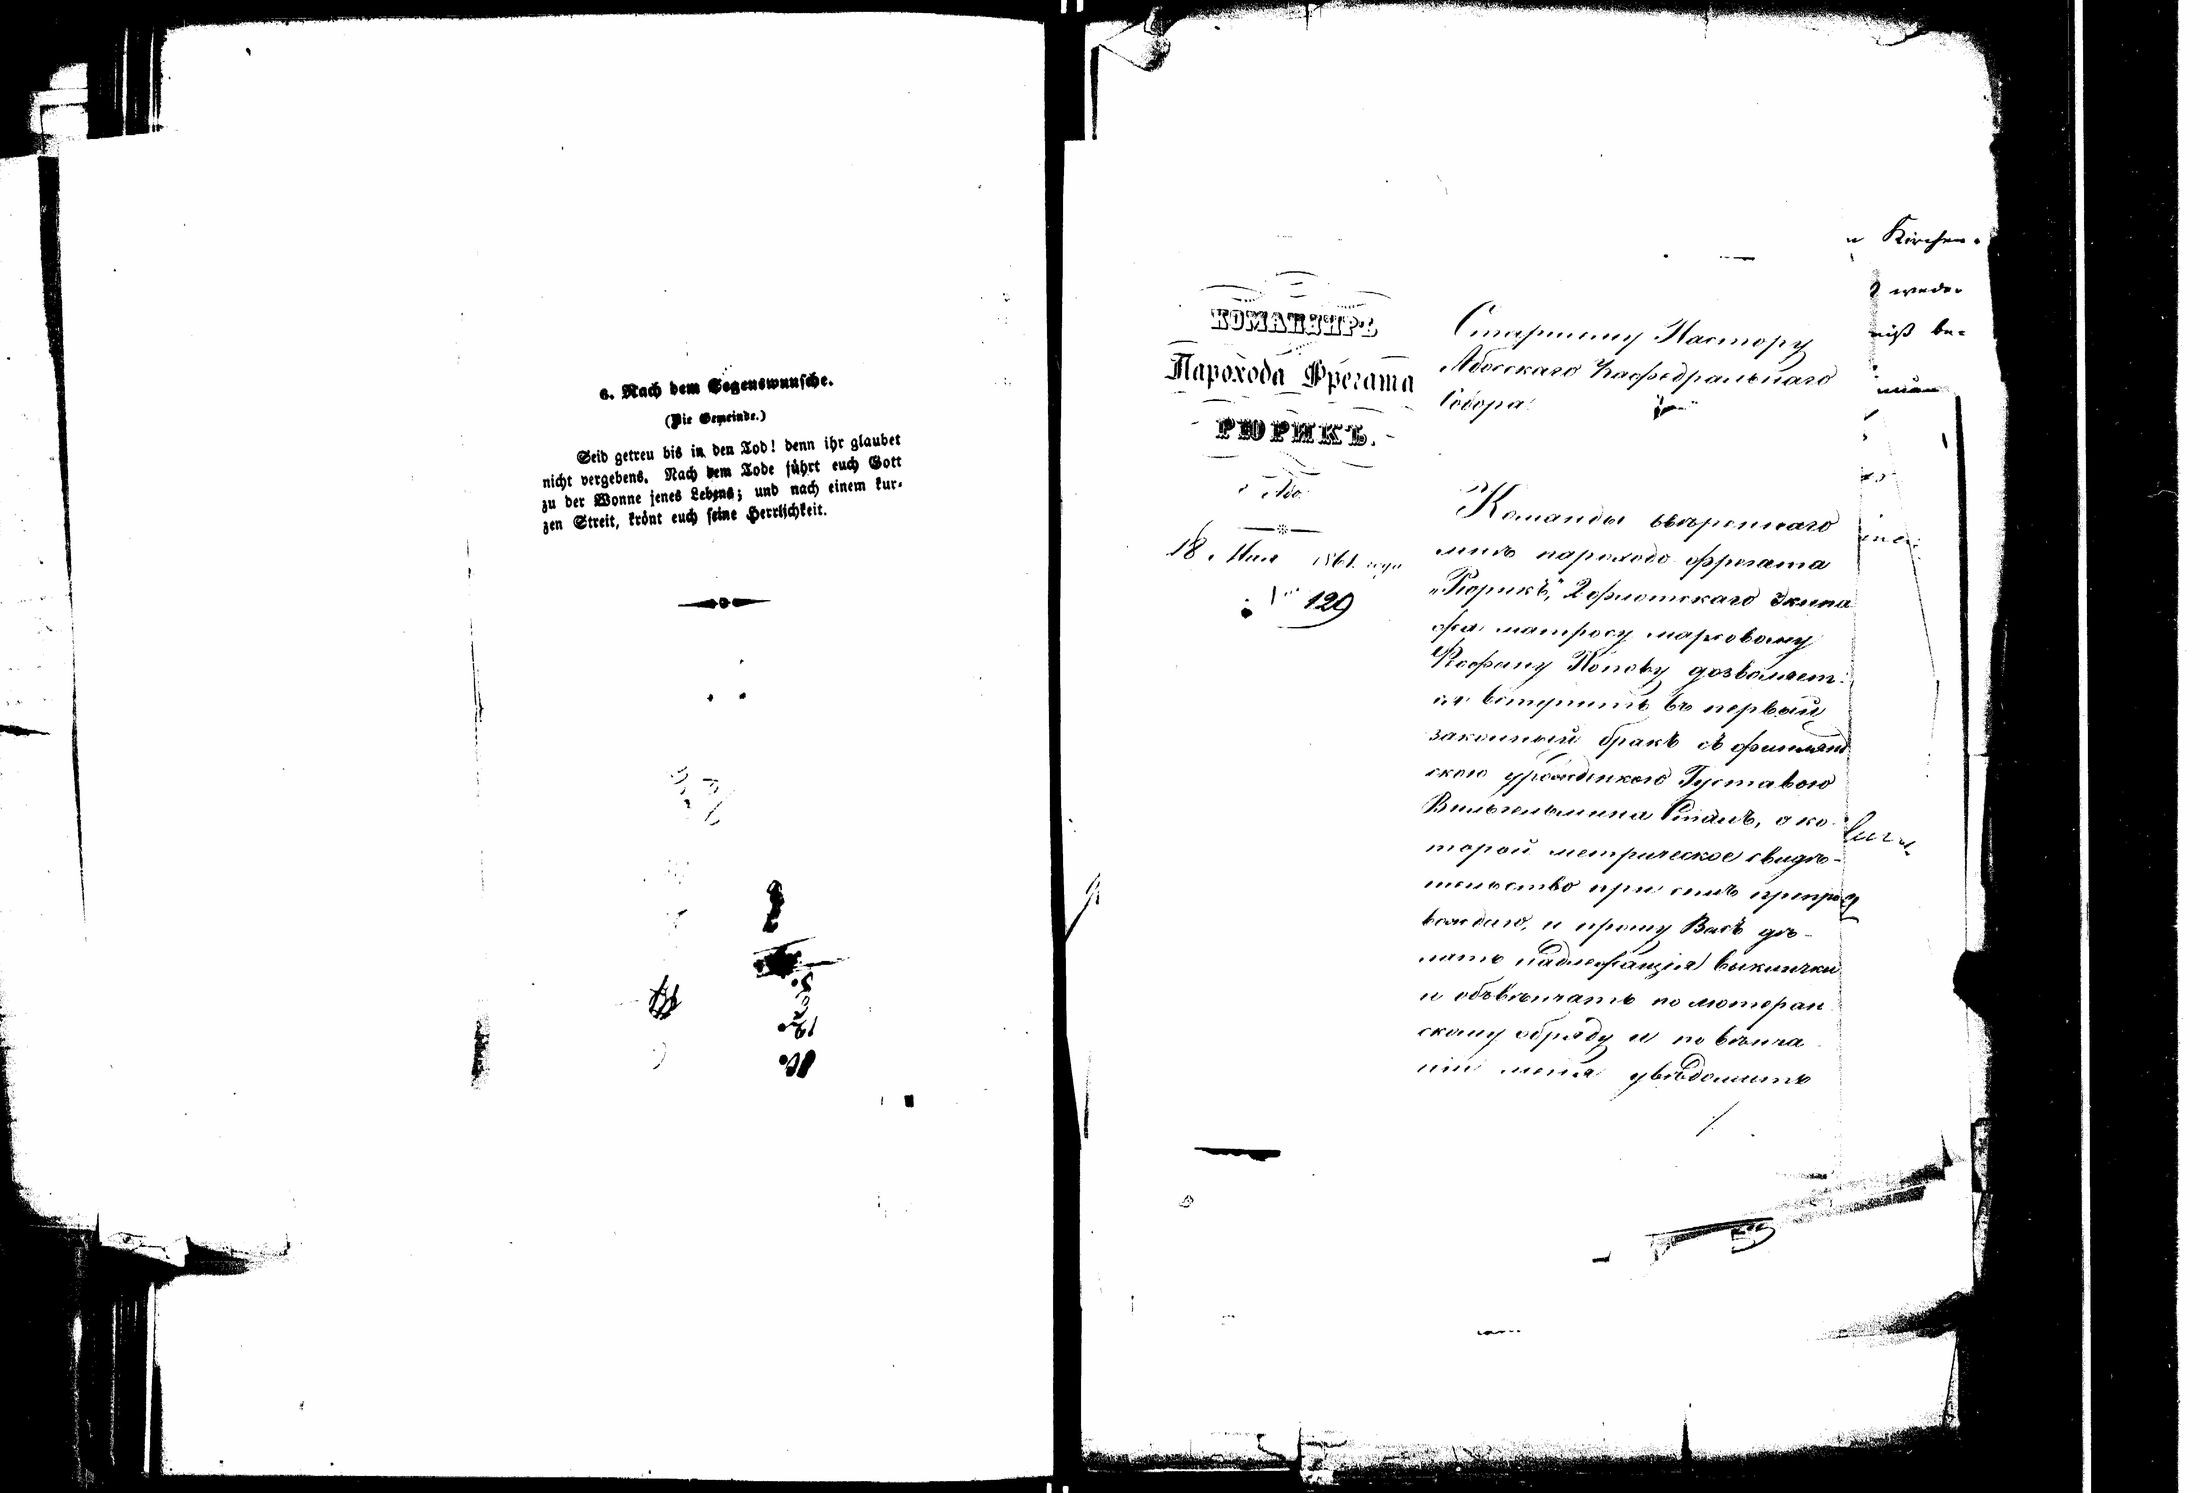 6. Nach dem Segenswunsche.
(Die Gemeinde.)
Seid getreu bis in den Tod! denn ihr glaubet
nicht vergebens. Nach dem Tode führt euch Gott
zu der Wonne jenes Lebens; und nach einem kur-
zen Streit, krönt euch seine Herrlichkeit.
КОМАНДИРЪ
Парохода Фрегата
РЮРИКЪ.
Або
18 1861 года
№ 129
Старшему Пастору
Абоскаго Кафедральнаго
Собора.
Команды ввѣреннаго
мнѣ пароходо фрегата
„Рюрикъ", 2 флотскаго Экипа
жа матросу марсовому
Попову дозволяет-
ся вступить въ первый
законный бракъ съ финлянд
скою урожденкою Густавою
Вильгельмина Сталь, о ко-
торой метрическое свидѣ-
тельство при семъ препро
вождаю, и прошу Васъ дѣ-
лать надлежащія выклички
и обвѣнчать по лютеран
скому обряду и по вѣнча
ніи меня увѣдомить
Kirchen-
weder
niß be-